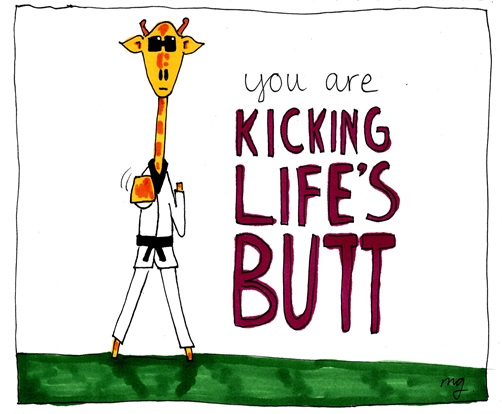 you are
KICKING
LIFE'S
BUTT
mg